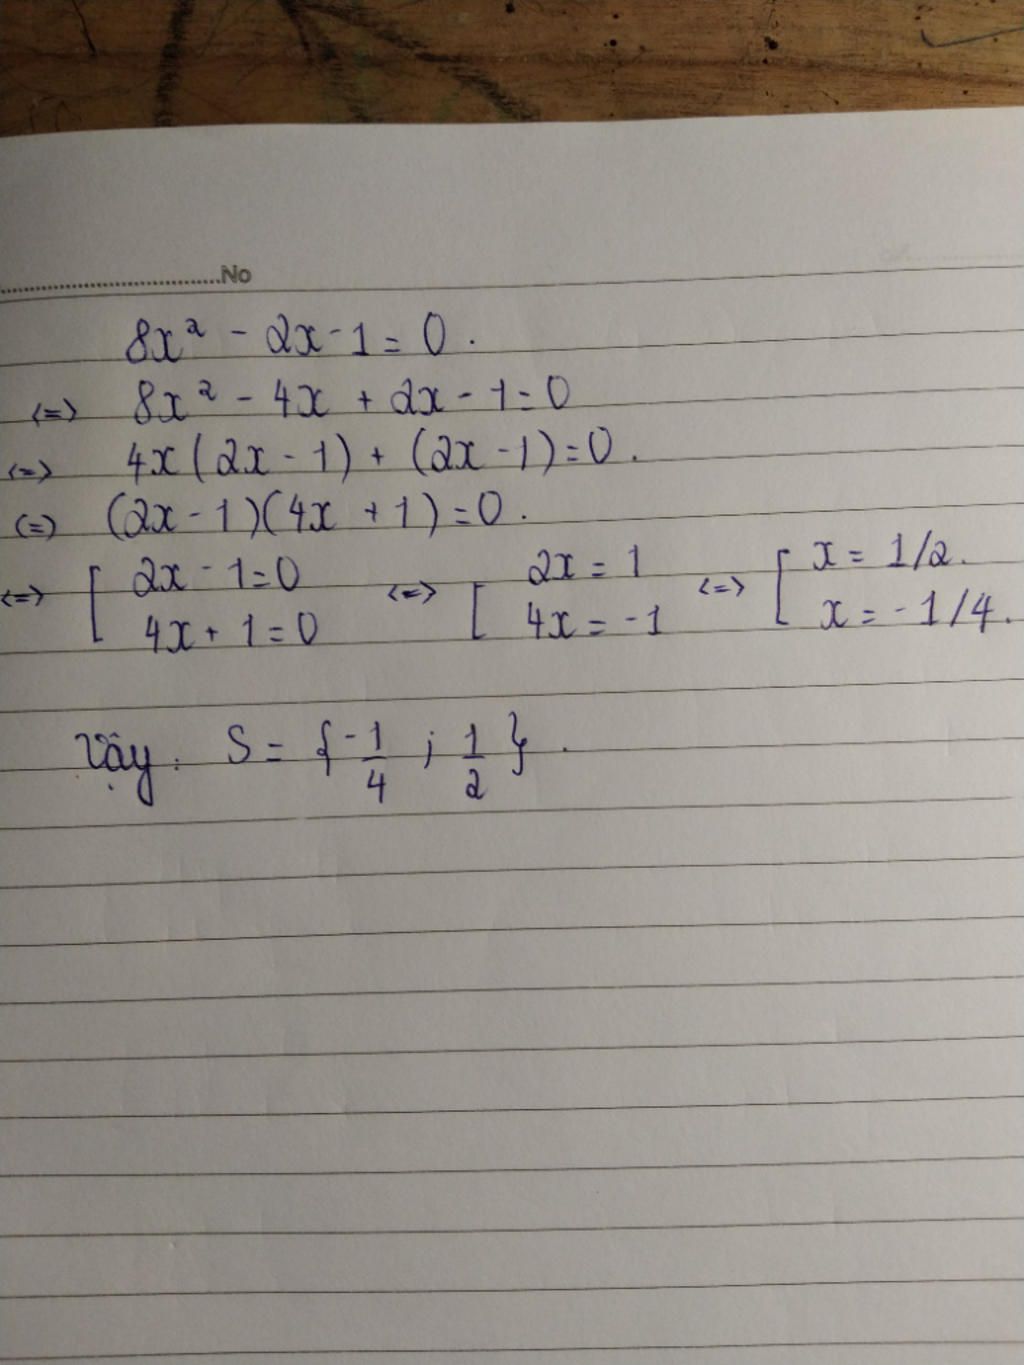 No
8x² - 2x - 1 = 0.
<=> 8x² - 4x + 2x - 1 = 0
<=> 4x(2x - 1) + (2x - 1) = 0.
<=> (2x - 1)(4x + 1) = 0.
<=> [ 2x - 1 = 0 <=> [ 2x = 1 <=> [ x = 1/2.
4x + 1 = 0 4x = -1 x = -1/4.
Vậy: S = { -1/4 ; 1/2 } .